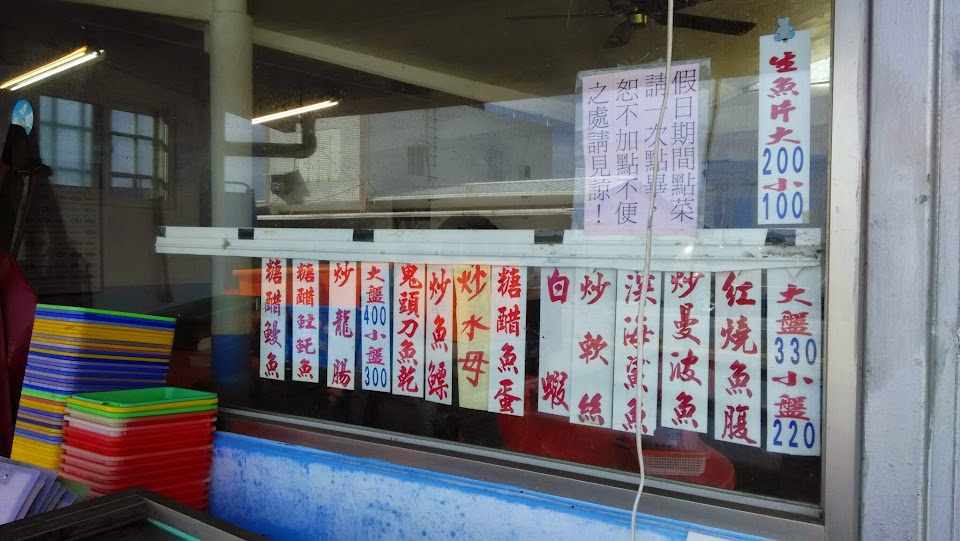 生魚片大200小100
假日期間點菜
請一次點畢，
恕不加點不便
之處請見諒！
大盤330小盤220
紅燒魚腹
炒曼波魚
深海鯊魚
炒軟絲
白蝦
糖醋魚蛋
炒水母
炒魚鰾
鬼頭刀魚乾
大盤400小盤300
炒龍腸
糖醋魠魚
糖醋鰻魚